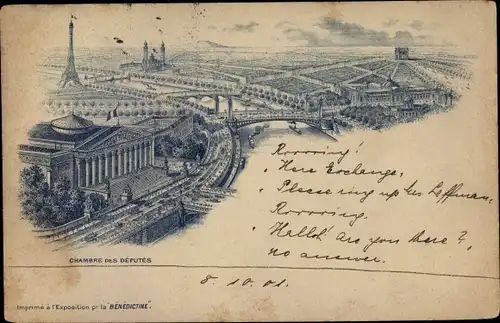 Rrrrring!
"Here Exchange,
"Please ring up Mr Leffman,
Rrrrring.
"Hallo! Are you there?"
no answer.
CHAMBRE DES DÉPUTÉS
8.10.01
Imprimé à l'Exposition pr la "BÉNÉDICTINE".